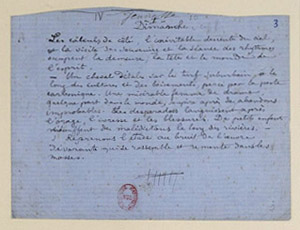 IV - Jeunesse
Dimanche
3
Les calculs de côté, l'inévitable descente du ciel,
et la visite des souvenirs et la séance des rhythmes
occupent la demeure, la tête et le monde de
l'esprit.
— Un cheval détale sur le turf suburbain, et le
long des cultures et des boisements, percé par la peste
carbonique. Une misérable femme de drame,
quelque part dans le monde, soupire après des abandons
improbables. Les desperadoes languissent après
l'orage, l'ivresse et les blessures. De petits enfants
étouffent des malédictions le long des rivières. —
Reprenons l'étude au bruit de l'œuvre
dévorante qui se rassemble et remonte dans les
masses.